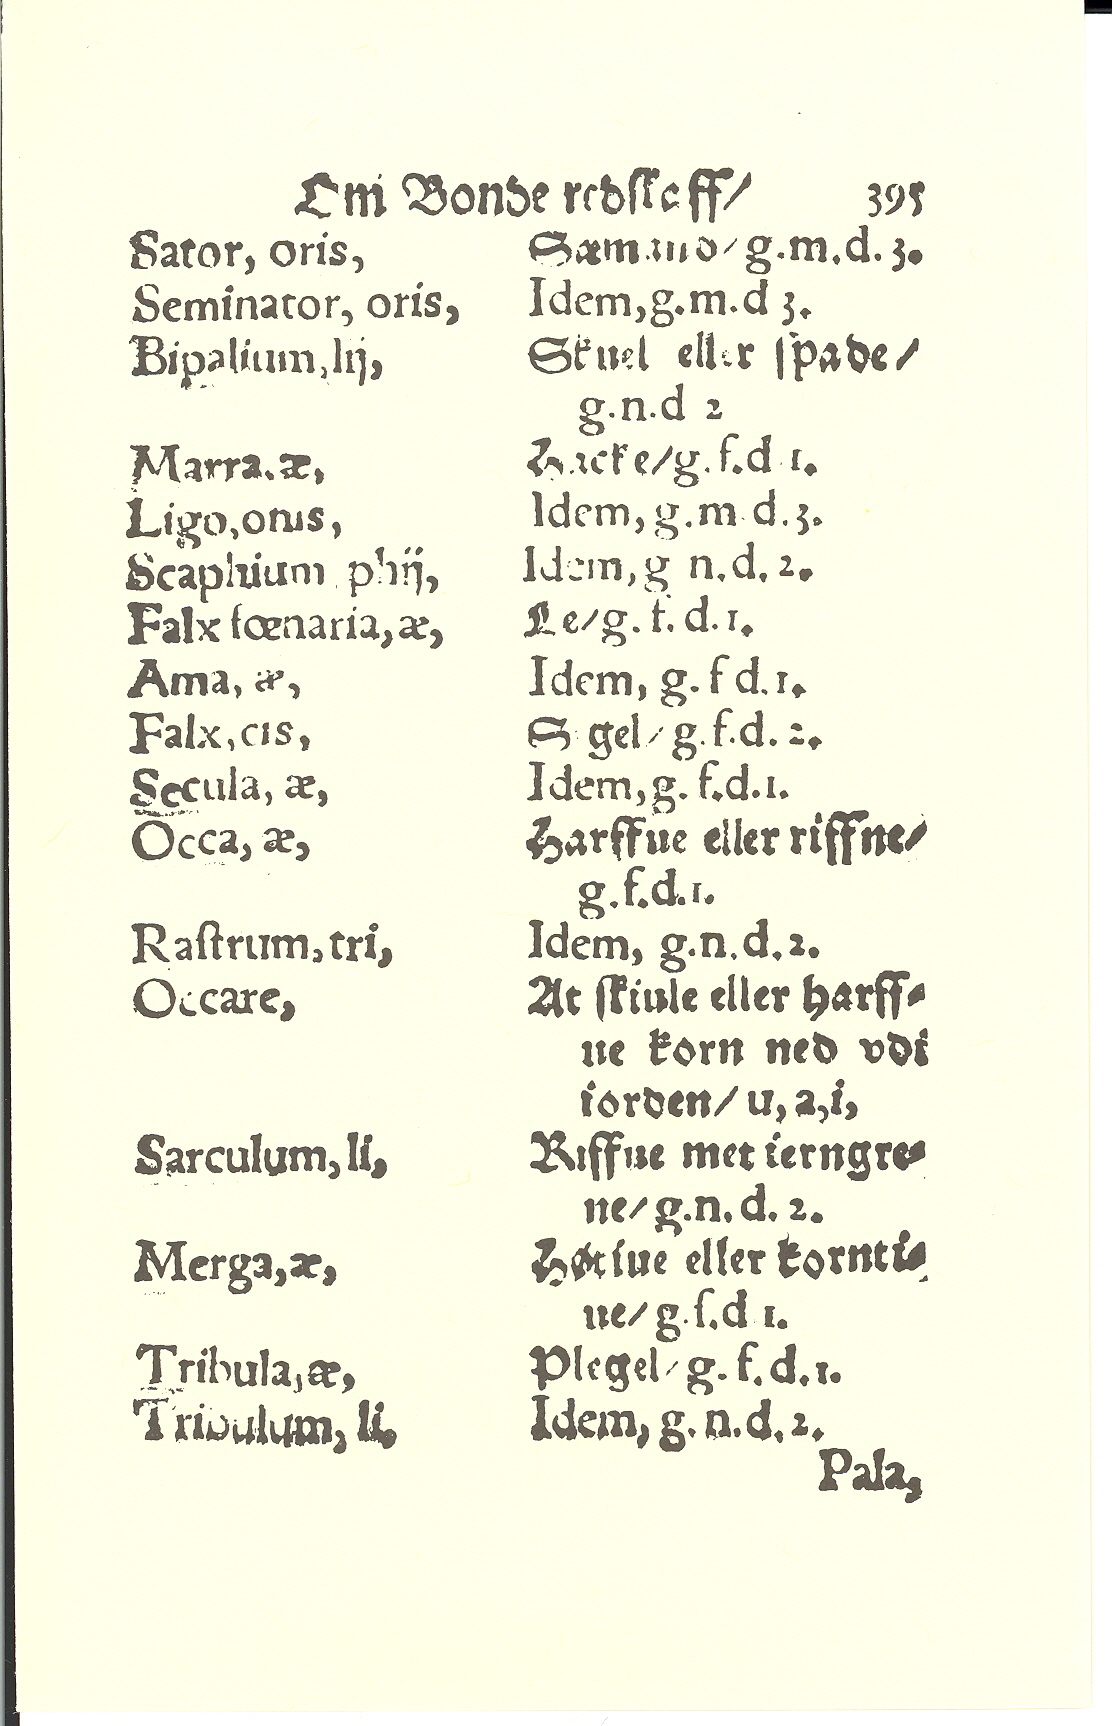 Om Bonde redskaff/ 395
Sator, oris, Sæmand/ g.m.d.3.
Seminator, oris, Idem,g.m.d 3.
Bipalium,lij, Skuel eller spade/
g.n.d 2
Marra.æ, Hacke/g.f.d.1.
Ligo,onis, Idem, g.m.d.3.
Scaphium phij, Idem,g n.d.2.
Falx fœnaria,æ, Le/g.f.d.1.
Ama, æ, Idem, g.f d.1.
Falx,cis, Sigel/g.f.d.2.
Secula, æ, Idem,g.f.d.1.
Occa, æ, Harffue eller riffne/
g.f.d.1.
Raſtrum,tri, Idem, g.n.d.2.
Occare, At ſkiule eller harff-
ue korn ned vdi
iorden/ u,a,i,
Sarculum,li, Riffue met ierngre-
ne/g.n.d.2.
Merga,æ, Høtiue eller kornti-
ue/g.f.d 1.
Tribula,æ, Plegel/g.f.d.1.
Tribulum, li, Idem, g.n.d.2.
Pala,